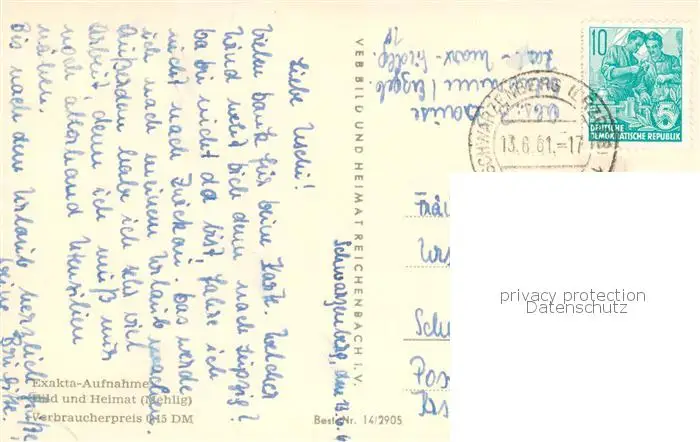 Schwarzenberg, den 13.6.61
Liebe Uschi!
Vielen Dank für deine Karte. Welcher
Wind weht dich denn nach Leipzig?
Da du nicht da bist, fahre ich
nicht nach Zwickau. Das werde
ich nach meinem Urlaub machen.
Außerdem habe ich sehr viel
Arbeit, denn ich muß mir
noch allerhand Utensilien
nähen.
Bis nach dem Urlaub herzliche Grüße
deine Brigitte.
Exakta-Aufnahme
Bild und Heimat (Mehlig)
Verbraucherpreis 0,15 DM
VEB BILD UND HEIMAT REICHENBACH I. V.
Best.-Nr. 14/2905
Abs.:
10
DEUTSCHE
DEMOKRATISCHE REPUBLIK
SCHWARZENBERG (ERZGEB)
13.6.61.-17
Schw
Pos
privacy protection
Datenschutz